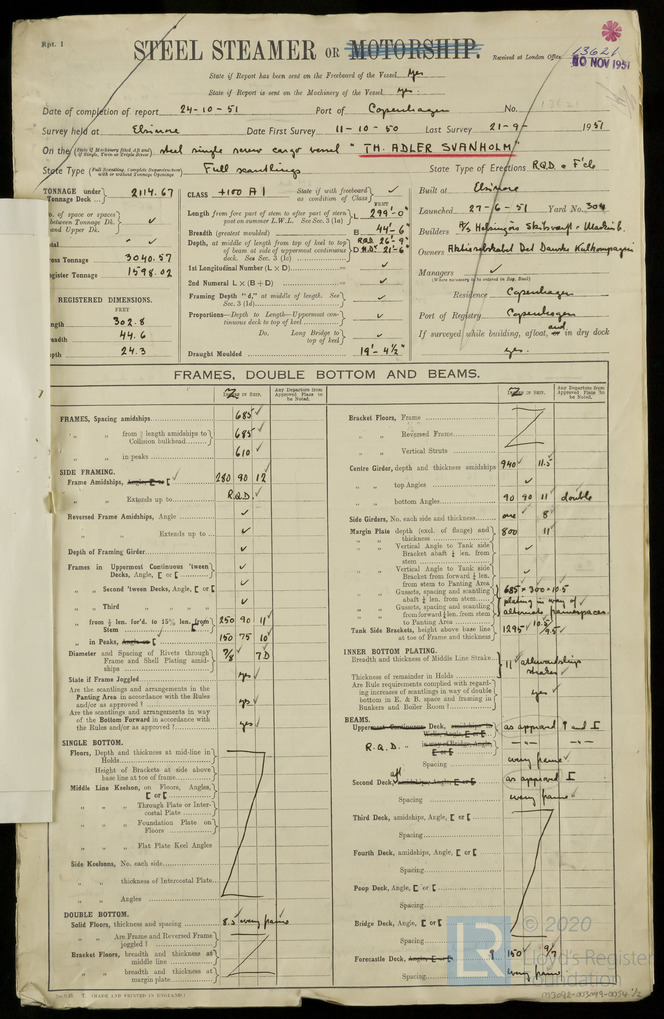 Rpt. 1
STEEL STEAMER OR MOTORSHIP.
13621
Received at London Office
10 NOV 1951
State if Report has been sent on the Freeboard of the Vessel yes
State if Report is sent on the Machinery of the Vessel yes.
Date of completion of report 24-10-51 Port of Copenhagen No.
Survey held at Elsinore Date First Survey 11-10-50 Last Survey 21-9- 1951
On the steel single screw cargo vessel "TH. ADLER SVANHOLM"
State Type Full scantlings State Type of Erections R.Q.D. & F'cle
TONNAGE under Tonnage Deck ... 2114.67
CLASS +100 A 1 State if with freeboard as condition of Class ✓
Built at Elsinore
Launched 27-6-51 Yard No. 304
Length from fore part of stem to after part of stern post on summer L.W.L. See Sec. 3 (1a) L 299'-0"
Breadth (greatest moulded) B 44'-6"
Depth, at middle of length from top of keel to top of beam at side of uppermost continuous deck. See Sec. 3 (1c) D R.Q.D. 26'-9" 21'-6"
1st Longitudinal Number (L × D) ✓
2nd Numeral L × (B + D) ✓
Framing Depth "d," at middle of length. See Sec. 3 (1d) ✓
Proportions—Depth to Length—Uppermost continuous deck to top of keel ✓
Do. Long Bridge to top of keel ✓
Draught Moulded 19'-4½"
no. of space or spaces between Tonnage Dk. and Upper Dk. ✓
Total ✓
Gross Tonnage 3040.57
Register Tonnage 1598.02
REGISTERED DIMENSIONS.
FEET
Length 302.8
Breadth 44.6
Depth 24.3
Owners Aktieselskabet Det Danske Kulkompagni
Managers ✓
(Where necessary to be entered in Reg. Book)
Residence Copenhagen
Port of Registry Copenhagen
If surveyed while building, afloat, and in dry dock
yes.
FRAMES, DOUBLE BOTTOM AND BEAMS.
Any Departure from Approved Plans to be Noted.
FRAMES, Spacing amidships 685 ✓
" " from ⅗ length amidships to Collision bulkhead 685 ✓
" " in peaks 610 ✓
SIDE FRAMING.
Frame Amidships, 280 90 12
" " Extends up to R.Q.D. ✓
Reversed Frame Amidships, Angle ✓
" " Extends up to ✓
Depth of Framing Girder ✓
Frames in Uppermost Continuous 'tween Decks, Angle, [ or [ ✓
" " Second 'tween Decks, Angle, [ or [ ✓
" " Third " " ✓
" " from ⅕ len. for'd. to 15% len. from Stem 250 90 11
" " in Peaks, 150 75 10
Diameter and Spacing of Rivets through Frame and Shell Plating amidships 7/8 7 D
State if Frame Joggled yes
Are the scantlings and arrangements in the Panting Area in accordance with the Rules and/or as approved? yes
Are the scantlings and arrangements in way of the Bottom Forward in accordance with the Rules and/or as approved? yes
SINGLE BOTTOM.
Floors, Depth and thickness at mid-line in Holds
Height of Brackets at side above base line at toe of frame
Middle Line Keelson, on Floors, Angles, [ or [
" " " Through Plate or Intercostal Plate
" " " Foundation Plate on Floors
" " " Flat Plate Keel Angles
Side Keelsons, No. each side
" " thickness of Intercostal Plate
" " Angles
DOUBLE BOTTOM.
Solid Floors, thickness and spacing 8.5 every frame
" " Are Frame and Reversed Frame joggled?
Bracket Floors, breadth and thickness at middle line
" " breadth and thickness at margin plate
Bracket Floors, Frame
" " Reversed Frame
" " Vertical Struts
Centre Girder, depth and thickness amidships 940 11.5
" " top Angles ✓
" " bottom Angles 90 90 11 double
Side Girders, No. each side and thickness one 8
Margin Plate depth (excl. of flange) and thickness 800 11
" " Vertical Angle to Tank side Bracket abaft ¼ len. from stem ✓
" " Vertical Angle to Tank side Bracket from forward ¼ len. from stem to Panting Area ✓
" " Gussets, spacing and scantling abaft ¼ len. from stem 685 × 300 × 10.5
" " Gussets, spacing and scantling from forward ¼ len. from stem to Panting Area plating in way of alternate framespaces
Tank Side Brackets, height above base line at toe of Frame and thickness 1295 10.5 9.5
INNER BOTTOM PLATING.
Breadth and thickness of Middle Line Strake
Thickness of remainder in Holds 11 athwartship strakes
Are Rule requirements complied with regarding increases of scantlings in way of double bottom in E. & B. space and framing in Bunkers and Boiler Room? yes
BEAMS.
Uppermost Continuous Deck, as approved
R.Q.D. "
Spacing every frame
Second Deck, aft as approved
Spacing every frame
Third Deck, amidships, Angle, [ or [
Spacing
Fourth Deck, amidships, Angle, [ or [
Spacing
Poop Deck, Angle, [ or [
Spacing
Bridge Deck, Angle, [ or [
Spacing
Forecastle Deck, 150 9/7
Spacing every frame
© 2020
LR
Lloyd's Register Foundation
(MADE AND PRINTED IN ENGLAND.)